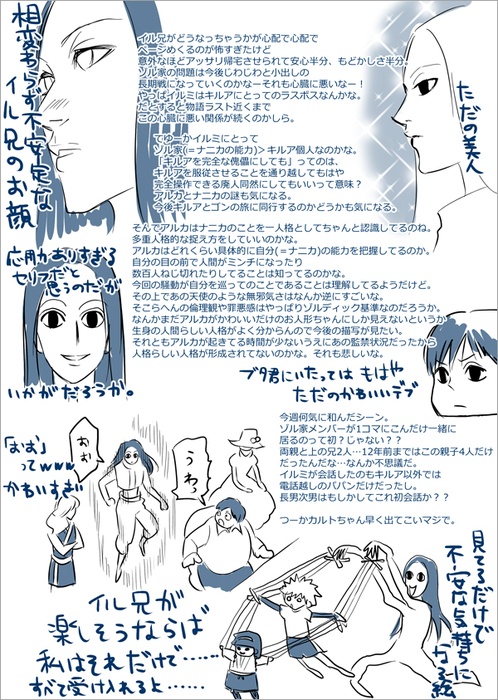 相変わらず不安定な
イル兄のお顔
イル兄がどうなっちゃうかが心配で心配で
ページめくるのが怖すぎたけど
意外なほどアッサリ帰宅させられて安心半分、もどかしさ半分。
ゾル家の問題は今後じわじわと小出しの
長期戦になっていくのかなーそれも心臓に悪いなー!
やっぱイルミはキルアにとってのラスボスなんかな。
だとすると物語ラスト近くまで
この心臓に悪い関係が続くのかしら。
ただの美人
てゆーかイルミにとって
ゾル家(=ナニカの能力)>キルア個人なのかな。
「キルアを完全な傀儡にしても」ってのは、
キルアを服従させることを通り越してもはや
完全操作できる廃人同然にしてもいいって意味?
アルカとナニカの謎も気になる。
今後キルアとゴンの旅に同行するのかどうかも気になる。
そんでアルカはナニカのことを一人格としてちゃんと認識してるのね。
多重人格的な捉え方をしていいのかな。
アルカはどれくらい具体的に自分(=ナニカ)の能力を把握してるのか。
自分の目の前で人間がミンチになったり
数百人ねじ切れたりしてることは知ってるのかな。
今回の騒動が自分を巡ってのことであることは理解してるようだけど。
その上であの天使のような無邪気さはなんか逆にすごいな。
そこらへんの倫理観や罪悪感はやっぱりゾルディック基準なのだろうか。
なんかまだアルカがかわいいだけのお人形ちゃんにしか見えないというか
生身の人間らしい人格がよく分からんので今後の描写が見たい。
それともアルカが起きてる時間が少ないうえにあの監禁状況だったから
人格らしい人格が形成されてないのかな。それも悲しいな。
応用力ありすぎる
セリフだと
思うのだが
いかがだろうか。
ブタ君にいたっては もはや
ただのかわいいデブ
今週何気に和んだシーン。
ゾル家メンバーが1コマにこんだけ一緒に
居るのって初?じゃない??
両親と上の兄2人…12年前まではこの親子4人だけ
だったんだな…なんか不思議だ。
イルミが会話したのもキルア以外では
電話越しのパパンだけだったし。
長男次男はもしかしてこれ初会話か??
つーかカルトちゃん早く出てこいマジで。
「おお」
ってwww
かわいすぎ
おお
うわっ
イル兄が
楽しそうならば
私はそれだけで……
すべて受け入れるよ……
見てるだけで
不安な気持ちに
なる絵